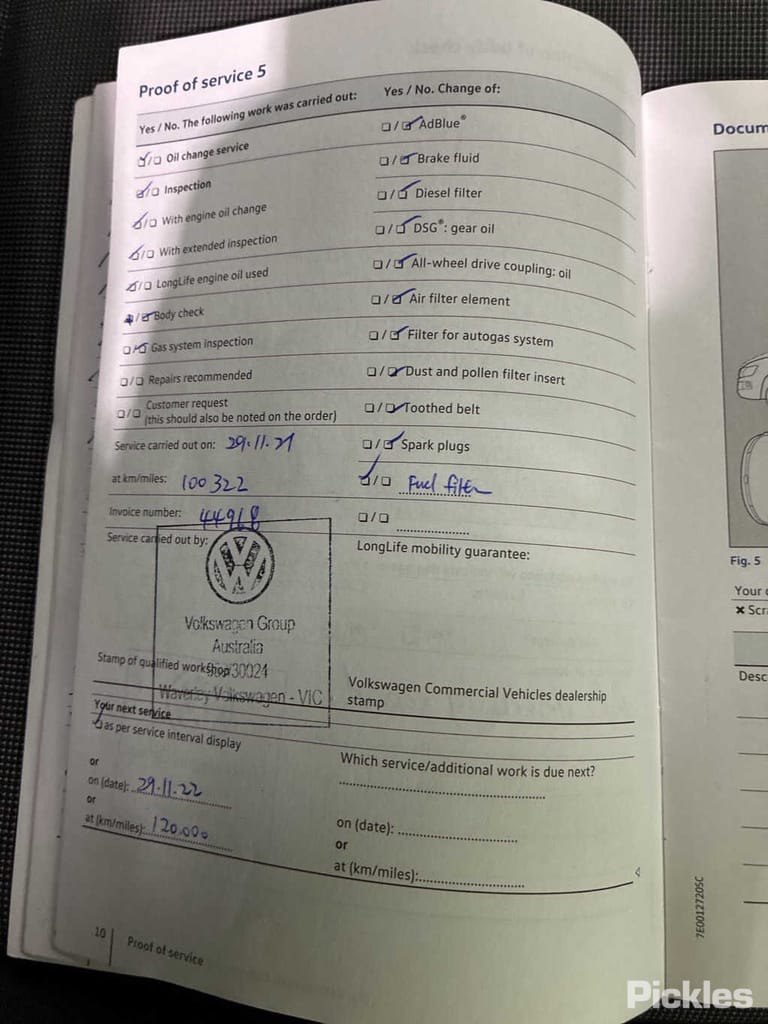 Proof of service 5
Yes / No. The following work was carried out:
☑/☐ Oil change service
☑/☐ Inspection
☑/☐ With engine oil change
☑/☐ With extended inspection
☑/☐ LongLife engine oil used
☐/☑ Body check
☐/☑ Gas system inspection
☐/☐ Repairs recommended
☐/☐ Customer request
(this should also be noted on the order)
Service carried out on: 29.11.21
at km/miles: 100322
Invoice number: 44968
Service carried out by:
Volkswagen Group
Australia
30024
Stamp of qualified workshop
Waverley Volkswagen - VIC
Your next service
☑ as per service interval display
or
on (date): 29.11.22
or
at (km/miles): 120.000
Yes / No. Change of:
☐/☑ AdBlue®
☐/☑ Brake fluid
☐/☑ Diesel filter
☐/☑ DSG®: gear oil
☐/☑ All-wheel drive coupling: oil
☐/☑ Air filter element
☐/☑ Filter for autogas system
☐/☑ Dust and pollen filter insert
☐/☑ Toothed belt
☐/☑ Spark plugs
☑/☐ Fuel filter
☐/☐
LongLife mobility guarantee:
Volkswagen Commercial Vehicles dealership
stamp
Which service/additional work is due next?
on (date):
or
at (km/miles):
10 Proof of service
Docum
Fig. 5
Your
✖ Scr
Desc
7E0012720SC
Pickles